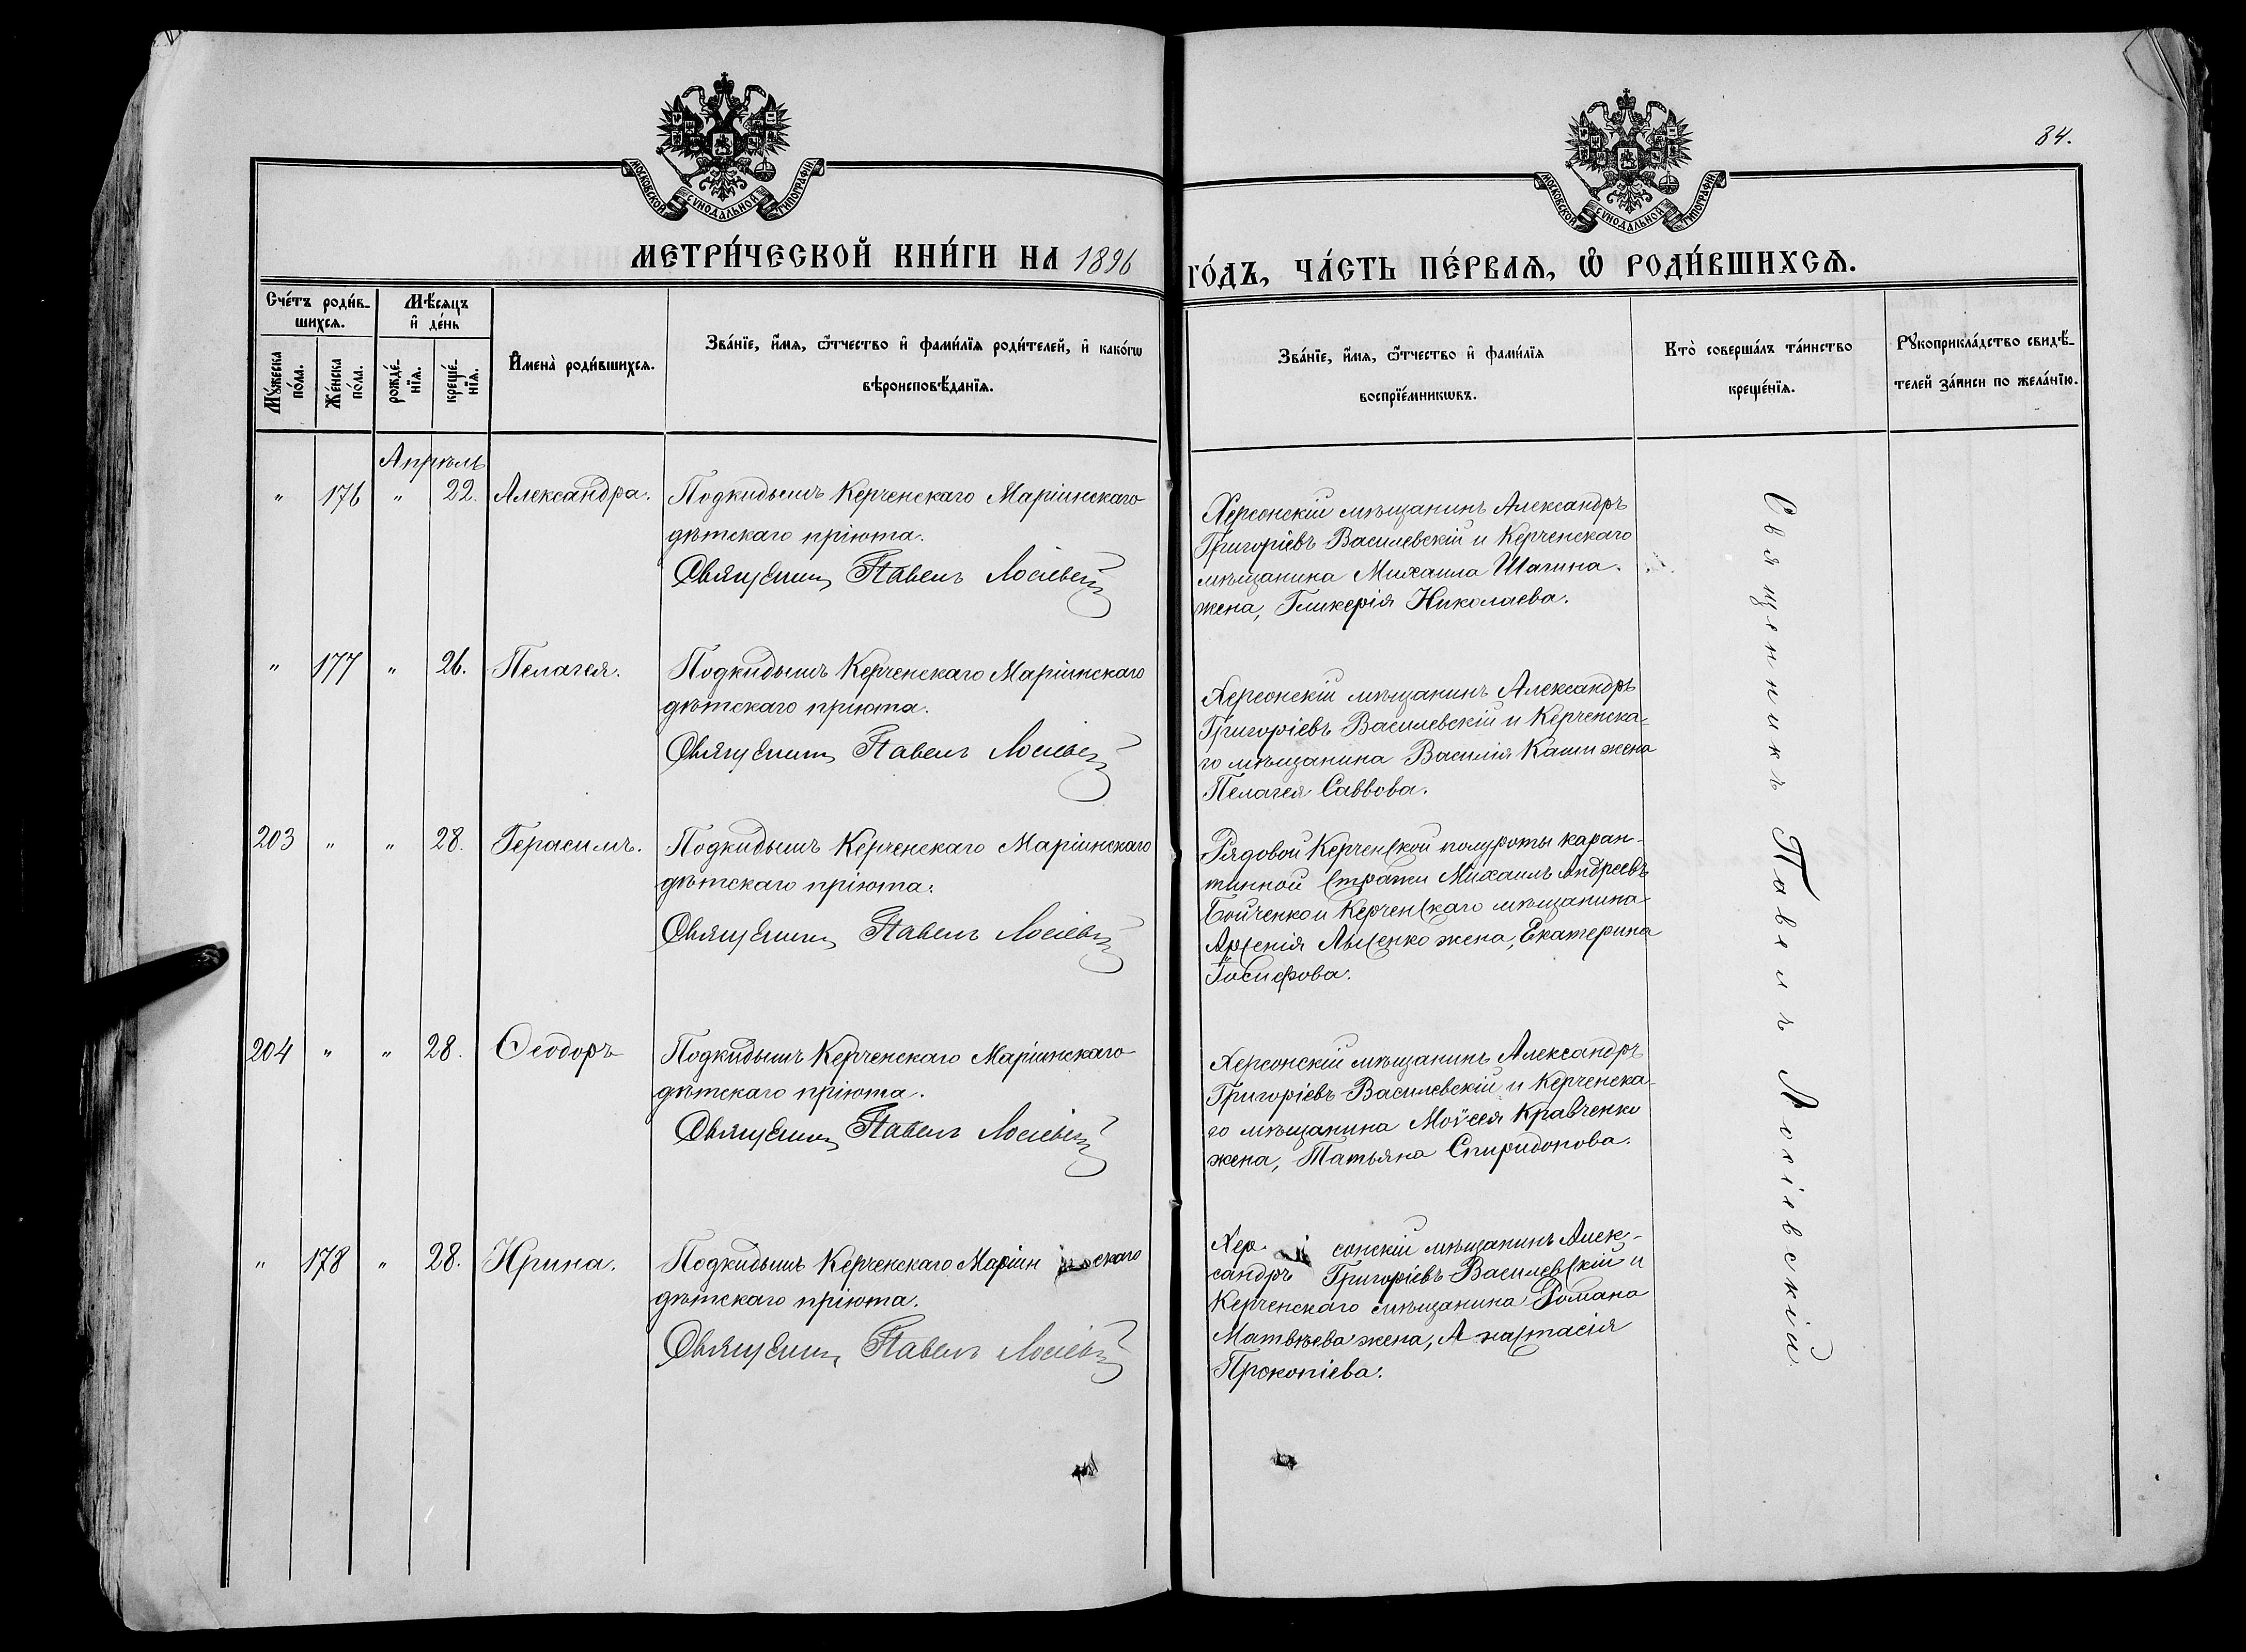 84.
МОСКОВСКОЙ СУНОДАЛЬНОЙ ТИПОГРАФІИ
МОСКОВСКОЙ СУНОДАЛЬНОЙ ТИПОГРАФІИ
МЕТРИ́ЧЕСКОЙ КНИ́ГИ НА 1896
ГО́ДЪ, ЧА́СТЬ ПЕ́РВАѦ, Ѡ РОДИ́ВШИХСѦ.
Сче́тъ роди́в-
шихсѧ.
Мѣ́сѧцъ
и де́нь
Мꙋ́жеска
по́ла.
Же́нска
по́ла.
рожде́-
нїѧ.
креще́-
нїѧ.
И҆мена̀ роди́вшихсѧ.
Зва́нїе, и҆́мѧ, ѻ҆́тчество и҆ фами́лїѧ роди́телей, и҆ како́гѡ
вѣроисповѣ́данїѧ.
Зва́нїе, и҆́мѧ, ѻ҆́тчество и҆ фами́лїѧ
воспрїе́мникѡвъ.
Кто̀ соверша́лъ та́инство
креще́нїѧ.
Рꙋкоприкла́дство свидѣ́-
телей за́писи по жела́нїю.
Апрѣль
" 176 " 22. Александра. Подкидышъ Керченскаго Маріинскаго
дѣтскаго пріюта.
Священникъ Павелъ Лосіевскій
Херсонскій мѣщанинъ Александръ
Григоріевъ Василевскій и Керченскаго
мѣщанина Михаила Шагина
жена, Гликерія Николаева.
" 177 " 26. Пелагея. Подкидышъ Керченскаго Маріинскаго
дѣтскаго пріюта.
Священникъ Павелъ Лосіевскій
Херсонскій мѣщанинъ Александръ
Григоріевъ Василевскій и Керченска-
го мѣщанина Василія Каши жена
Пелагея Саввова.
203 " " 28. Герасимъ. Подкидышъ Керченскаго Маріинскаго
дѣтскаго пріюта.
Священникъ Павелъ Лосіевскій
Рядовой Керченской полуроты каран-
тинной стражи Михаилъ Андреевъ
Бойченко и Керченскаго мѣщанина
Арсенія Лысенко жена, Екатерина
Іосифова.
204 " " 28. Ѳеодоръ Подкидышъ Керченскаго Маріинскаго
дѣтскаго пріюта.
Священникъ Павелъ Лосіевскій
Херсонскій мѣщанинъ Александръ
Григоріевъ Василевскій и Керченска-
го мѣщанина Моѵсея Кравченко
жена, Татьяна Спиридонова.
" 178 " 28. Ирина. Подкидышъ Керченскаго Маріинскаго
дѣтскаго пріюта.
Священникъ Павелъ Лосіевскій
Херсонскій мѣщанинъ Алек-
сандръ Григоріевъ Василевскій и
Керченскаго мѣщанина Романа
Матвѣева жена, Анастасія
Прокопіева.
Священникъ Павелъ Лосіевскій